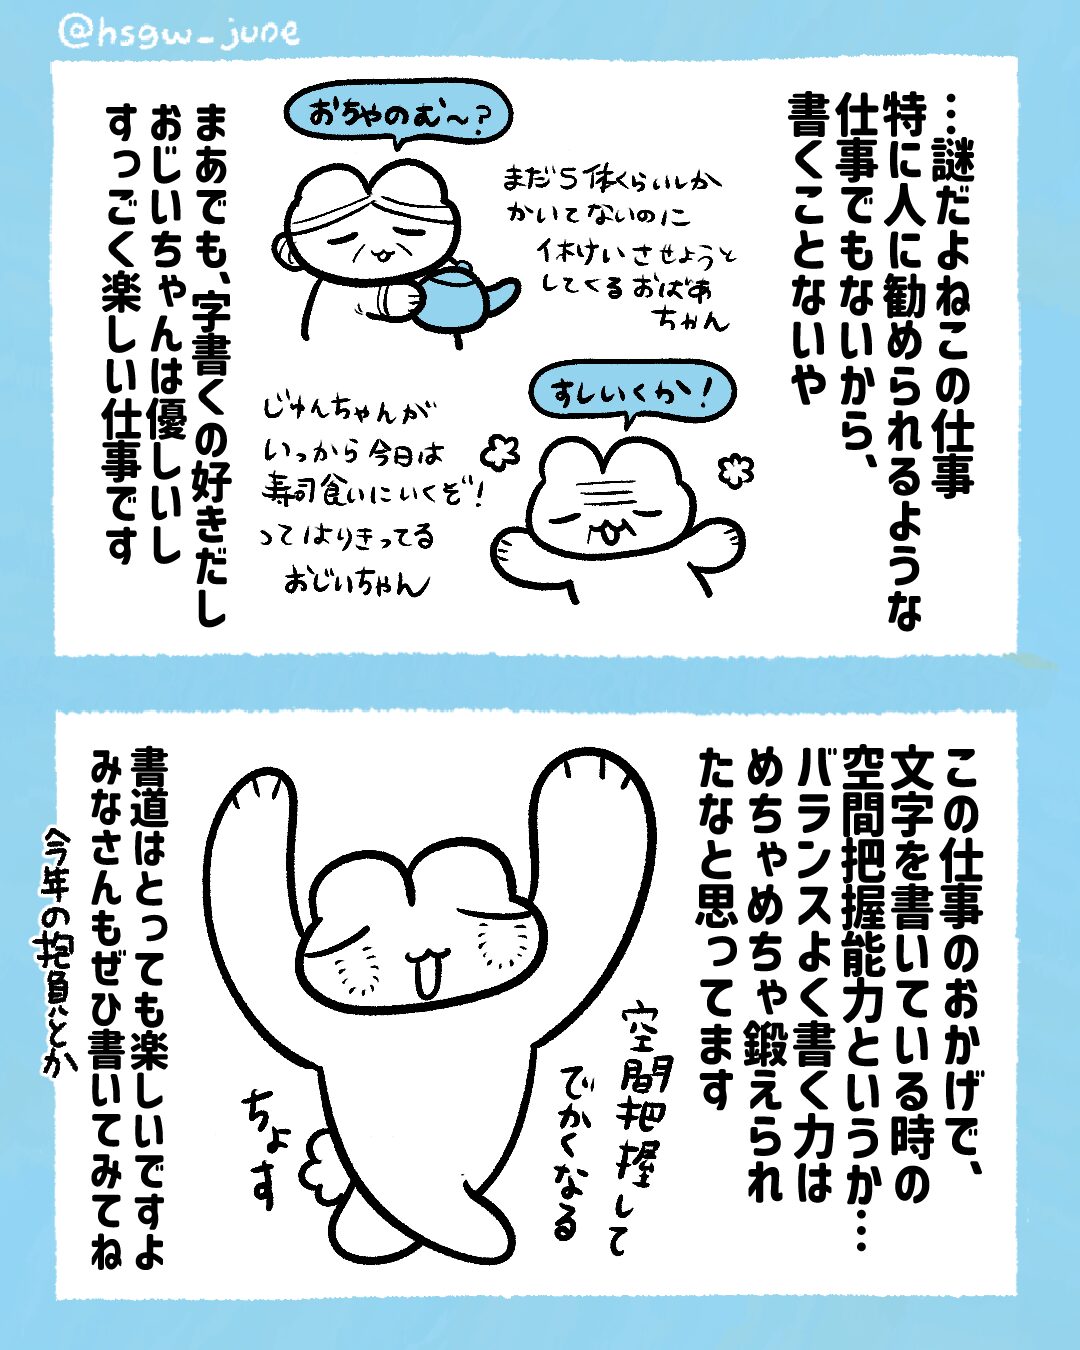 @hsgw_june
…謎だよねこの仕事
特に人に勧められるような
仕事でもないから、
書くことないや
おちゃのむ〜?
まだ5体くらいしか
かいてないのに
休けいさせようと
してくるおばあ
ちゃん
すしいくか!
じゅんちゃんが
いっから今日は
寿司食いにいくぞ!
ってはりきってる
おじいちゃん
まあでも、字書くの好きだし
おじいちゃんは優しいし
すっごく楽しい仕事です
この仕事のおかげで、
文字を書いている時の
空間把握能力というか…
バランスよく書く力は
めちゃめちゃ鍛えられ
たなと思ってます
空間把握して
でかくなる
ちょす
書道はとっても楽しいですよ
みなさんもぜひ書いてみてね
今年の抱負とか